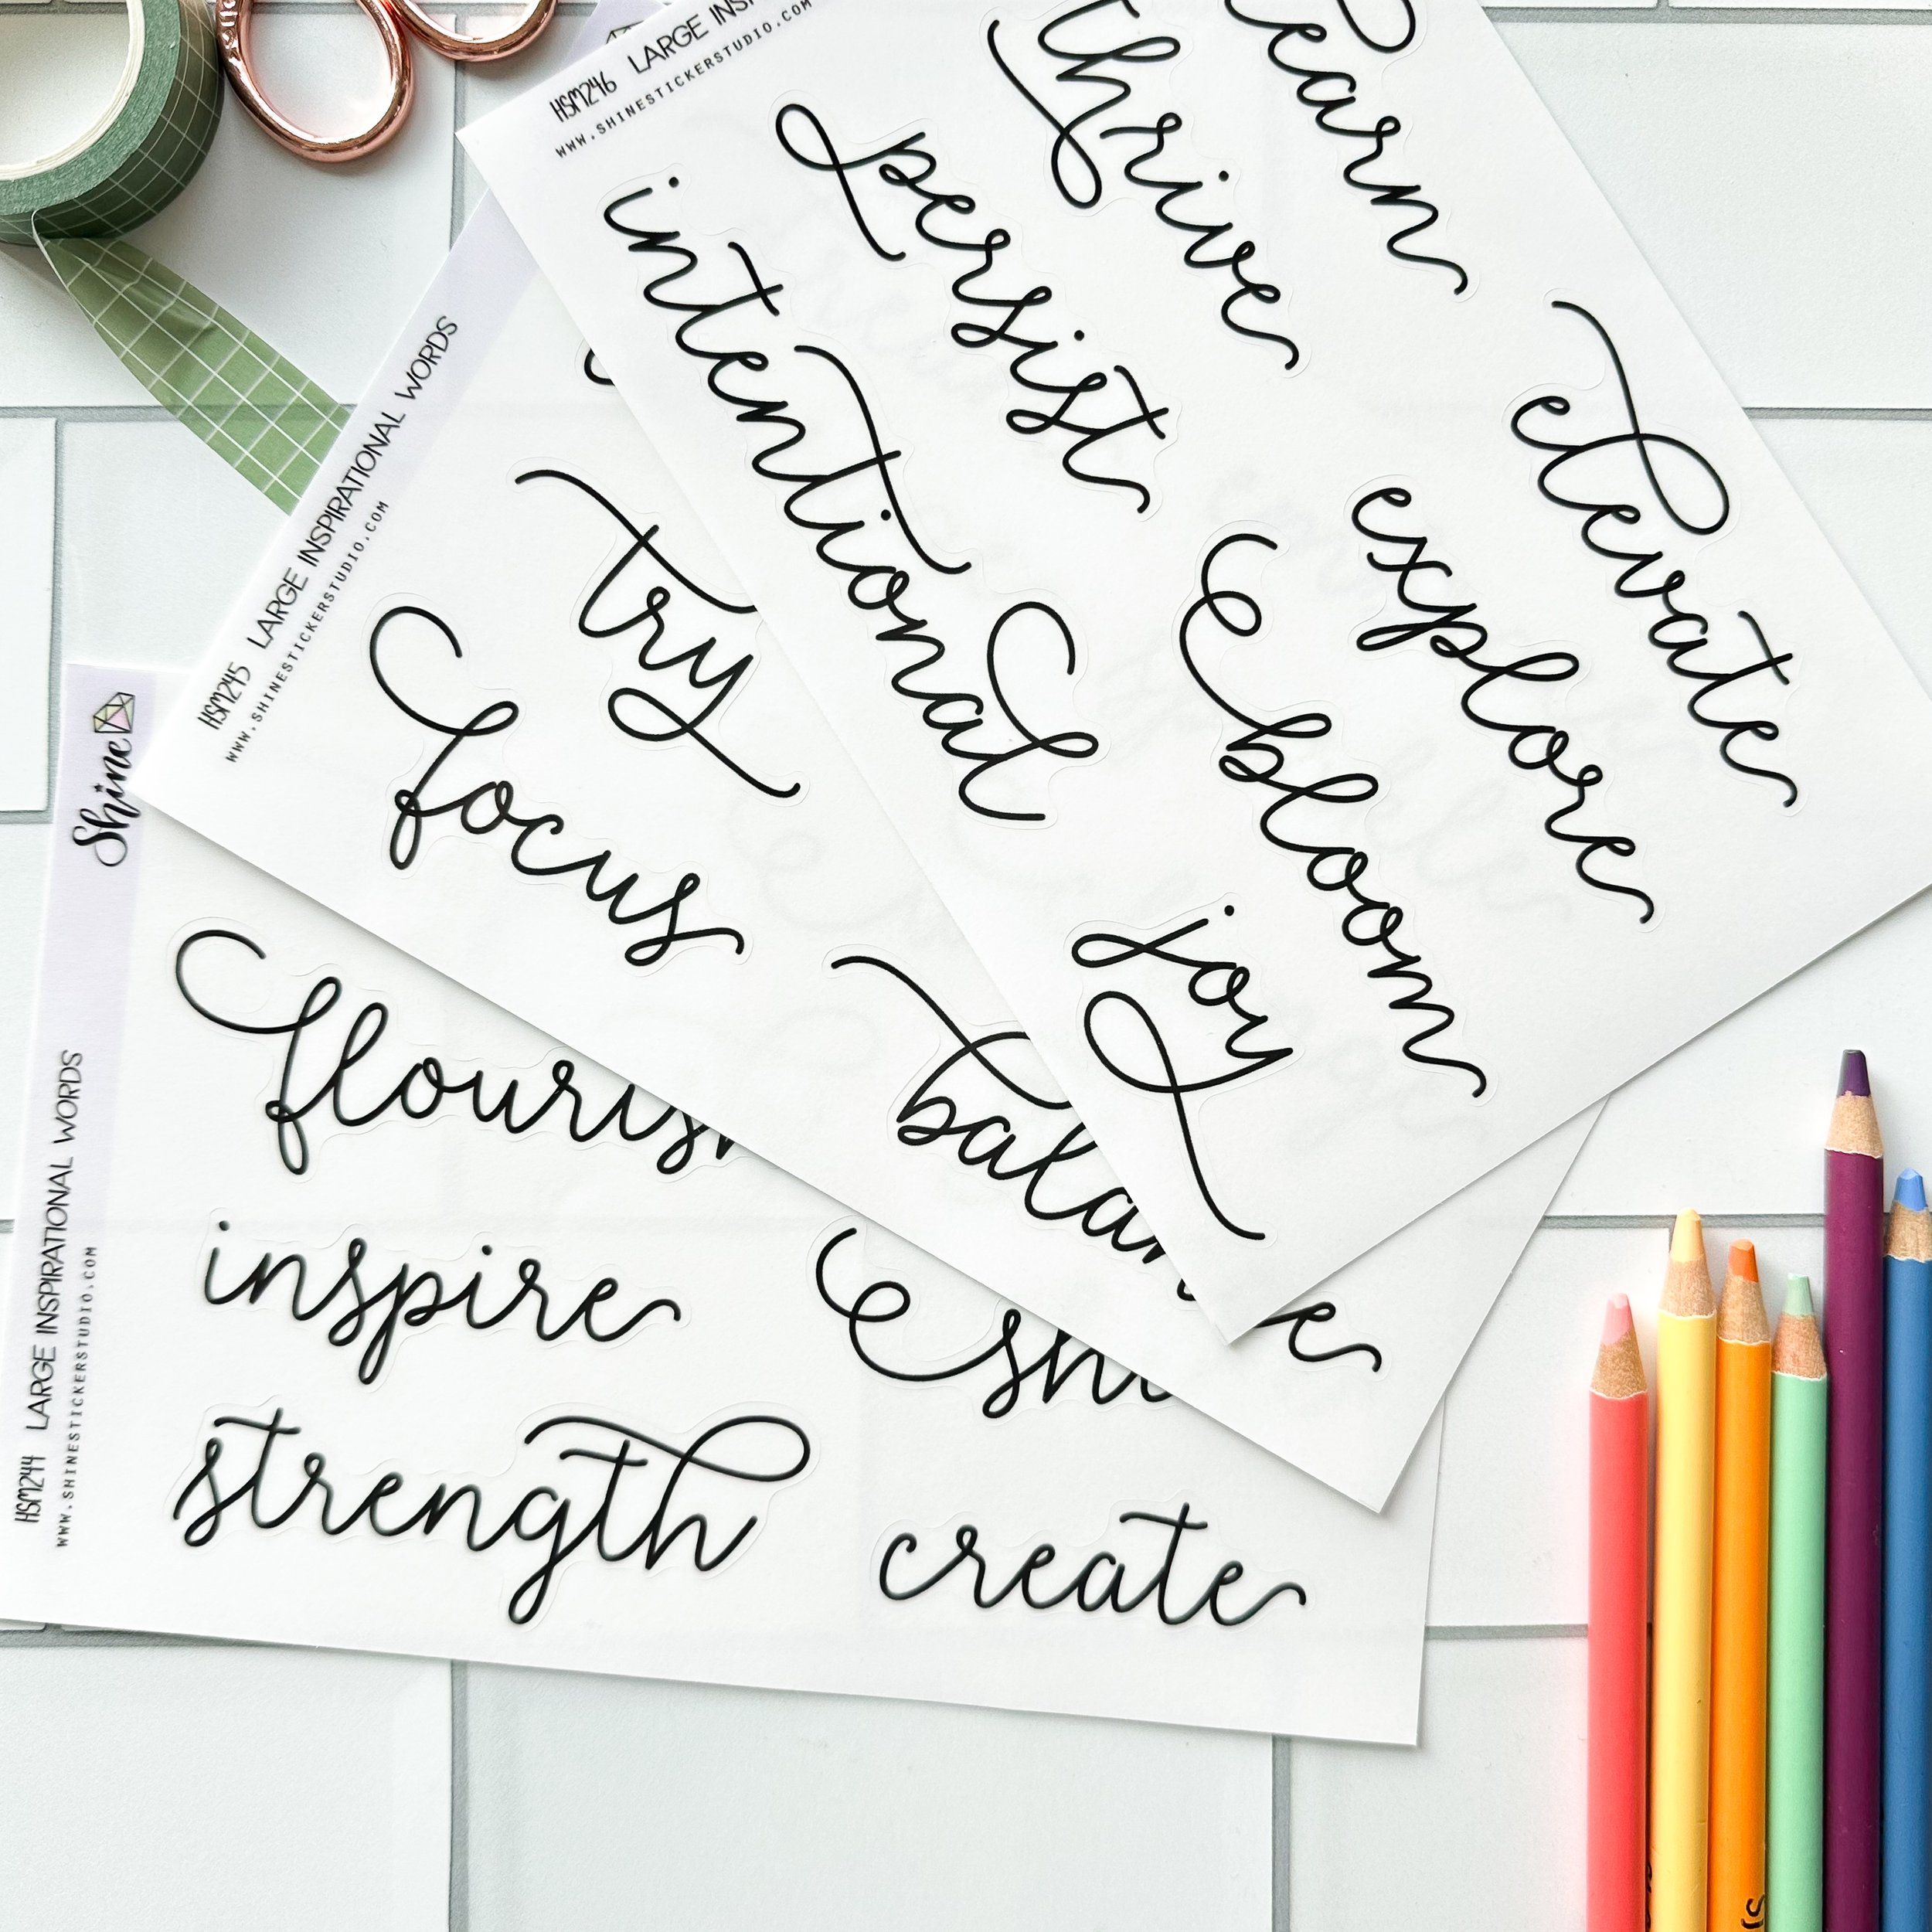 HSM246 LARGE INSP
WWW.SHINESTICKERSTUDIO.COM
learn
thrive
persist
intentional
elevate
explore
bloom
joy
HSM245 LARGE INSPIRATIONAL WORDS
WWW.SHINESTICKERSTUDIO.COM
try
focus
balance
Shine
HSM244 LARGE INSPIRATIONAL WORDS
WWW.SHINESTICKERSTUDIO.COM
flourish
inspire
shi
strength
create